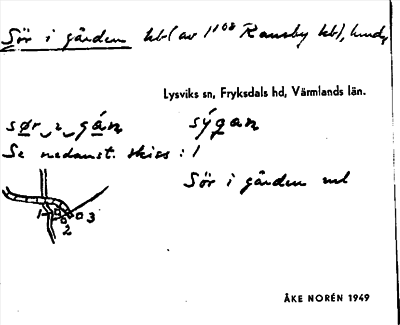 Sör i gården hb (av 1¹⁰⁸ Ransby hb), hmdg
Lysviks sn, Fryksdals hd, Värmlands län.
sør_ı_gán sýgan
Se nedanst. skiss : 1
Sör i gården ul
1 3
2
ÅKE NORÉN 1949